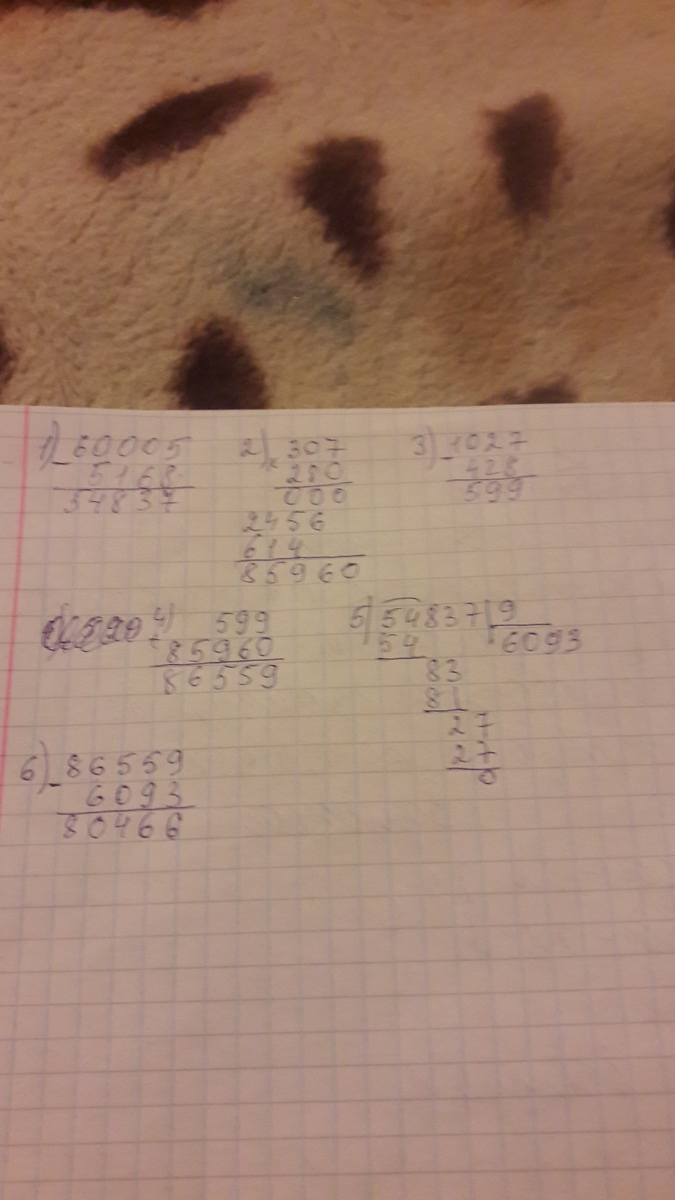 1) 60005
- 5168
54837
2) 307
× 280
000
2456
614
85960
3) 1027
- 428
599
4) 599
+ 85960
86559
5) 54837 | 9
54 6093
83
81
27
27
0
6) 86559
- 6093
80466